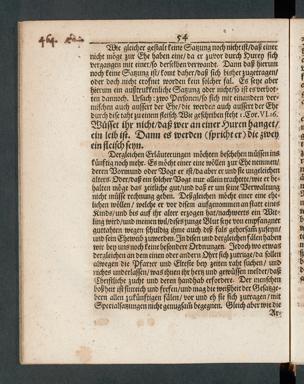 54
Wie gleicher gestalt keine Satzung noch nicht ist/ daß einer
nicht möge zur Ehe haben eine/ da er zuvor durch Hurey sich
vergangen mit einer/ so derselben verwandt. Dann daß hierum
noch keine Satzung ist/ komt daher/ daß sich bisher zugetragen/
oder doch nicht eröffnet worden kein solcher fal. Es seye aber
hierum ein außtrukenliche Satzung oder nicht/ so ist es verbot-
ten dannoch. Ursach: zwo Personen/ so sich mit einandern ver-
mischen auch aussert der Ehe/ die werden auch aussert der Ehe
durch diese taht zu einem fleisch. Wie geschriben steht 1. Cor. VI. 16.
Wüsset ihr nicht/ daß wer an einer Huren hanget/
ein leib ist. Dann es werden (spricht er) die zwey
ein fleisch seyn.
Dergleichen Erläuterungen möchten beschehen müssen ins
künftig noch mehr. Es möchte einer eine wöllen zur Ehe nemmen/
deren Vormund oder Vogt er ist/ da aber er und sie ungleichen
alters. Oder/ daß ein solcher Vogt nur allein trachtete/ wie er be-
halten möge das zeitliche gut/ und daß er um seine Verwaltung
nicht müsse rechnung geben. Deßgleichen möchte einer eine ehe-
lichen wöllen/ welche er vor disem aufgenommen an statt eines
Kinds/ und bis auf ihr alter erzogen
guttahten wegen schuldig ihme auch diß fals gehorsam zuseyn/
und sein Eheweib zuwerden. In disen und dergleichen fällen haben
wir bey uns noch keine besondere Ordnungen. Jedoch wo etwas
dergleichen an dem einen oder andern Ohrt sich zutrüge/ da sollen
alwegen die Pfarrer und Elteste bey zeiten raht suchen/ und
nichts underlassen/ was ihnen ihr herz und gewüssen meldet/ daß
Christliche zucht und deren handhab erfordere. Der menschen
boßheit ist sinnreich und frefen/ und mag die weißheit der Gesatzge-
beren allen zukünftigen fällen/ vor und eh sie sich zutragen/ mit
Specialsatzungen nicht genugsam begegnen. Gleich aber wie die
Ar-